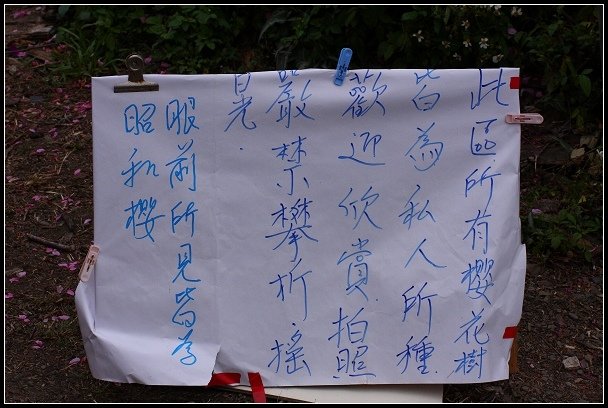 此區所有櫻花樹
皆為私人所種
歡迎欣賞拍照
嚴禁攀折搖
晃.
眼前所見皆為
昭和櫻